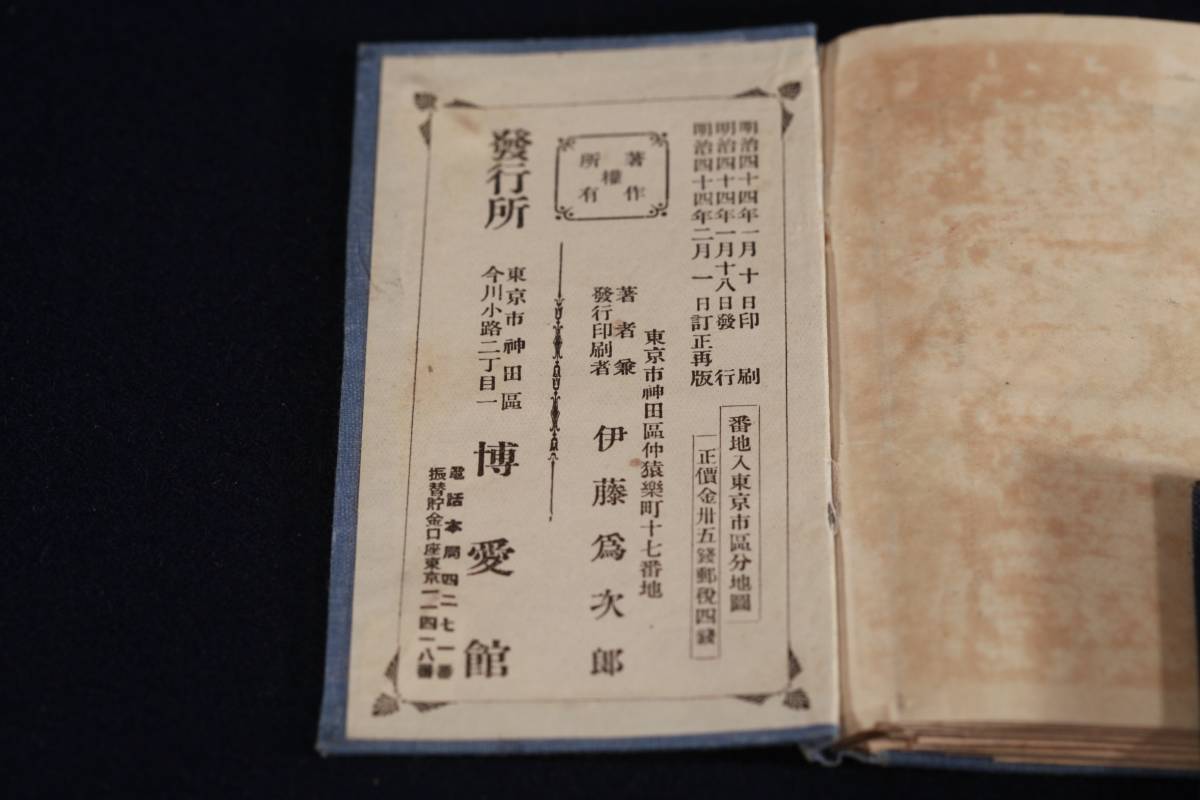 明治四十四年一月十日印刷
明治四十四年一月十八日發行
明治四十四年二月一日訂正再版
番地入東京市區分地圖
正價金卅五錢郵稅四錢
東京市神田區仲猿樂町十七番地
著者兼
發行印刷者
伊藤爲次郎
著作
權
所有
發行所
東京市神田區
今川小路二丁目一
博愛館
電話本局四二七一番
振替貯金口座東京一一四一八番